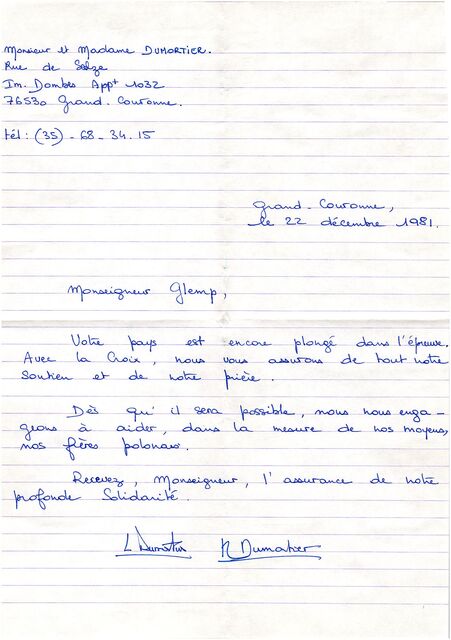 Monsieur et Madame DUMORTIER.
Rue de Seize
Im. Dombes Appt 1032
76530 Grand-Couronne.
tél : (35) - 68 - 34. 15
Grand-Couronne,
le 22 décembre 1981.
Monseigneur Glemp,
Votre pays est encore plongé dans l'épreuve.
Avec la Croix, nous vous assurons de tout notre
soutien et de notre prière.
Dès qu'il sera possible, nous nous enga-
geons à aider, dans la mesure de nos moyens,
nos frères polonais.
Recevez, Monseigneur, l'assurance de notre
profonde Solidarité.
L Dumortier R Dumortier